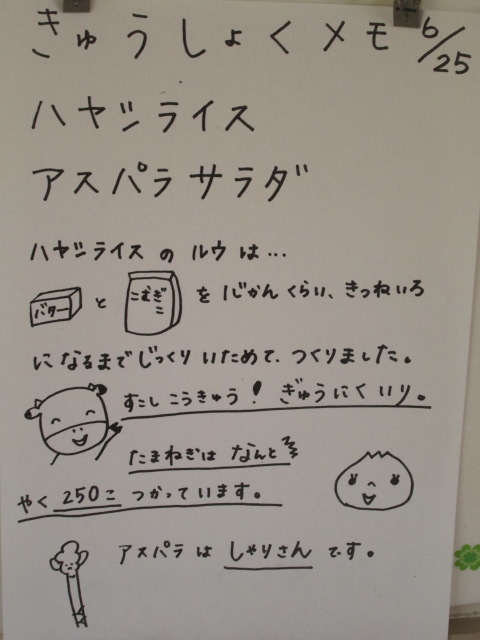 きゅうしょくメモ 6/25
ハヤシライス
アスパラサラダ
ハヤシライスのルウは...
バターとこむぎこを1じかんくらい、きつねいろ
になるまでじっくりいためて、つくりました。
すこしこうきゅう!ぎゅうにくいり。
たまねぎはなんと
やく250こつかっています。
アスパラはしゃりさんです。